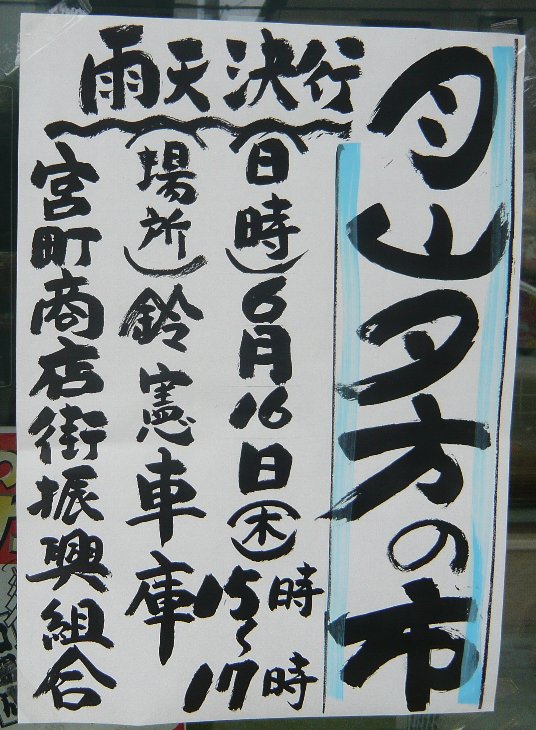 月山夕方の市
雨天決行
(日時)6月16日(木)15時〜17時
(場所)鈴憲車庫
宮町商店街振興組合